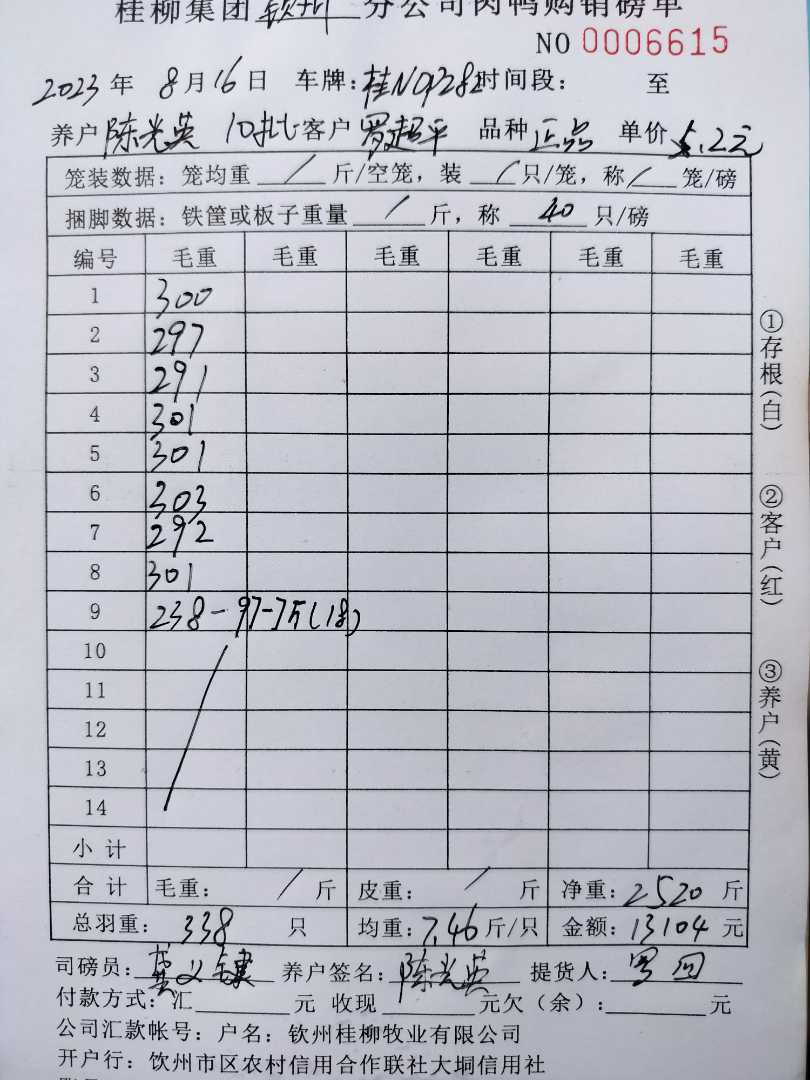 桂柳集团钦州分公司肉鸭购销磅单
NO 0006615
2023年 8月16日 车牌:桂N09282时间段: 至
养户陈光英 10批客户罗超平 品种正品 单价5.2元
笼装数据:笼均重 / 斤/空笼,装 / 只/笼,称 / 笼/磅
捆脚数据:铁筐或板子重量 / 斤,称 40 只/磅
编号 毛重 毛重 毛重 毛重 毛重 毛重
1 300
2 297
3 291
4 301
5 301
6 303
7 292
8 301
9 238-97-7斤(18)
10
11
12
13
14
小计
合计 毛重: / 斤 皮重: / 斤 净重:2520斤
总羽重: 338 只 均重:7.46斤/只 金额:13104元
司磅员: 养户签名:陈光英 提货人:罗
付款方式:汇 元 收现 元欠(余): 元
公司汇款帐号:户名:钦州桂柳牧业有限公司
开户行:饮州市区农村信用合作联社大垌信用社
①存根(白)
②客户(红)
③养户(黄)